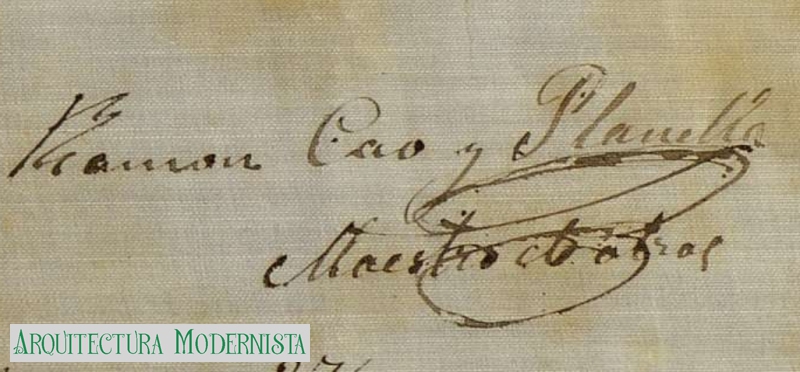 Ramon Cao y Planella
Maestro de Obras
ARQUITECTURA MODERNISTA